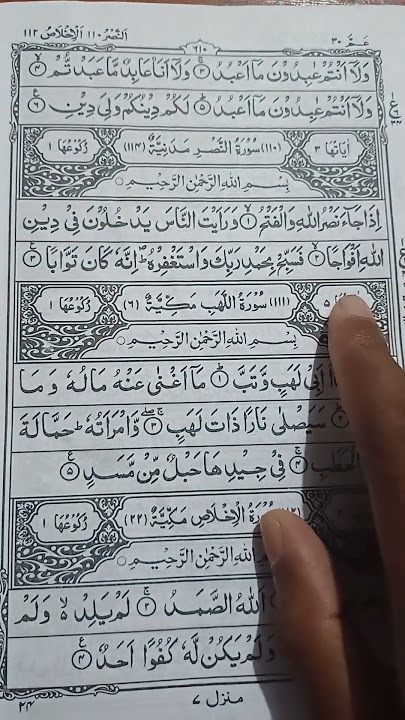 عَمَّ ٣٠ النَّصْر ١١٠ الْاِخْلَاص ١١٢
٦١٠
وَلَاۤ اَنْتُمْ عٰبِدُوْنَ مَاۤ اَعْبُدُ ۚ﴿۳﴾ وَلَاۤ اَنَا عَابِدٌ مَّا عَبَدْتُّمْ ۙ﴿۴﴾
وَلَاۤ اَنْتُمْ عٰبِدُوْنَ مَاۤ اَعْبُدُ ؕ﴿۵﴾ لَكُمْ دِيْنُكُمْ وَلِيَ دِيْنِ ﴿۶﴾
اٰيَاتُهَا ٣ (١١٠) سُوْرَةُ النَّصْرِ مَدَنِيَّةٌ (١١٤) رُكُوْعُهَا ١
بِسْمِ اللهِ الرَّحْمٰنِ الرَّحِيْمِ
اِذَا جَآءَ نَصْرُ اللهِ وَالْفَتْحُ ۙ﴿۱﴾ وَرَاَيْتَ النَّاسَ يَدْخُلُوْنَ فِيْ دِيْنِ
اللهِ اَفْوَاجًا ۙ﴿۲﴾ فَسَبِّحْ بِحَمْدِ رَبِّكَ وَاسْتَغْفِرْهُ ؕ اِنَّهٗ كَانَ تَوَّابًا ﴿۳﴾
٥ (١١١) سُوْرَةُ اللَّهَبِ مَكِّيَّةٌ (٦) رُكُوْعُهَا ١
بِسْمِ اللهِ الرَّحْمٰنِ الرَّحِيْمِ
اَبِيْ لَهَبٍ وَّتَبَّ ؕ﴿۱﴾ مَاۤ اَغْنٰى عَنْهُ مَالُهٗ وَمَا
سَيَصْلٰى نَارًا ذَاتَ لَهَبٍ ۚ﴿۳﴾ وَّامْرَاَتُهٗ ؕ حَمَّالَةَ
الْحَطَبِ ۚ﴿۴﴾ فِيْ جِيْدِهَا حَبْلٌ مِّنْ مَّسَدٍ ﴿۵﴾
سُوْرَةُ الْاِخْلَاصِ مَكِّيَّةٌ (٢٢) رُكُوْعُهَا ١
بِسْمِ اللهِ الرَّحْمٰنِ الرَّحِيْمِ
اَللهُ الصَّمَدُ ۚ﴿۲﴾ لَمْ يَلِدْ ۙ وَلَمْ
وَلَمْ يَكُنْ لَّهٗ كُفُوًا اَحَدٌ ﴿۴﴾
منزل ٧